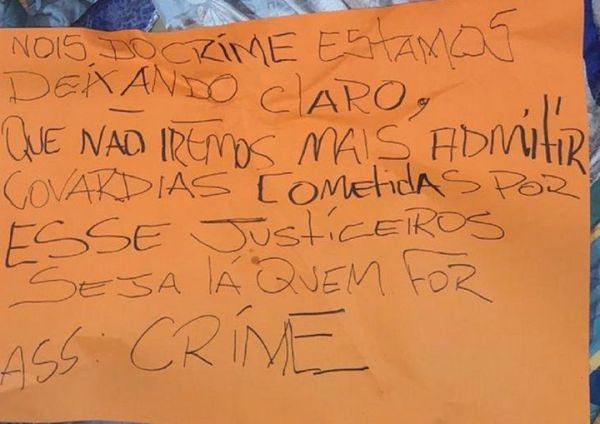 NOIS DO CRIME ESTAMOS
DEIXANDO CLARO,
QUE NÃO IREMOS MAIS ADMITIR
COVARDIAS COMETIDAS POR
ESSE JUSTICEIROS
SEJA LÁ QUEM FOR
ASS: CRIME